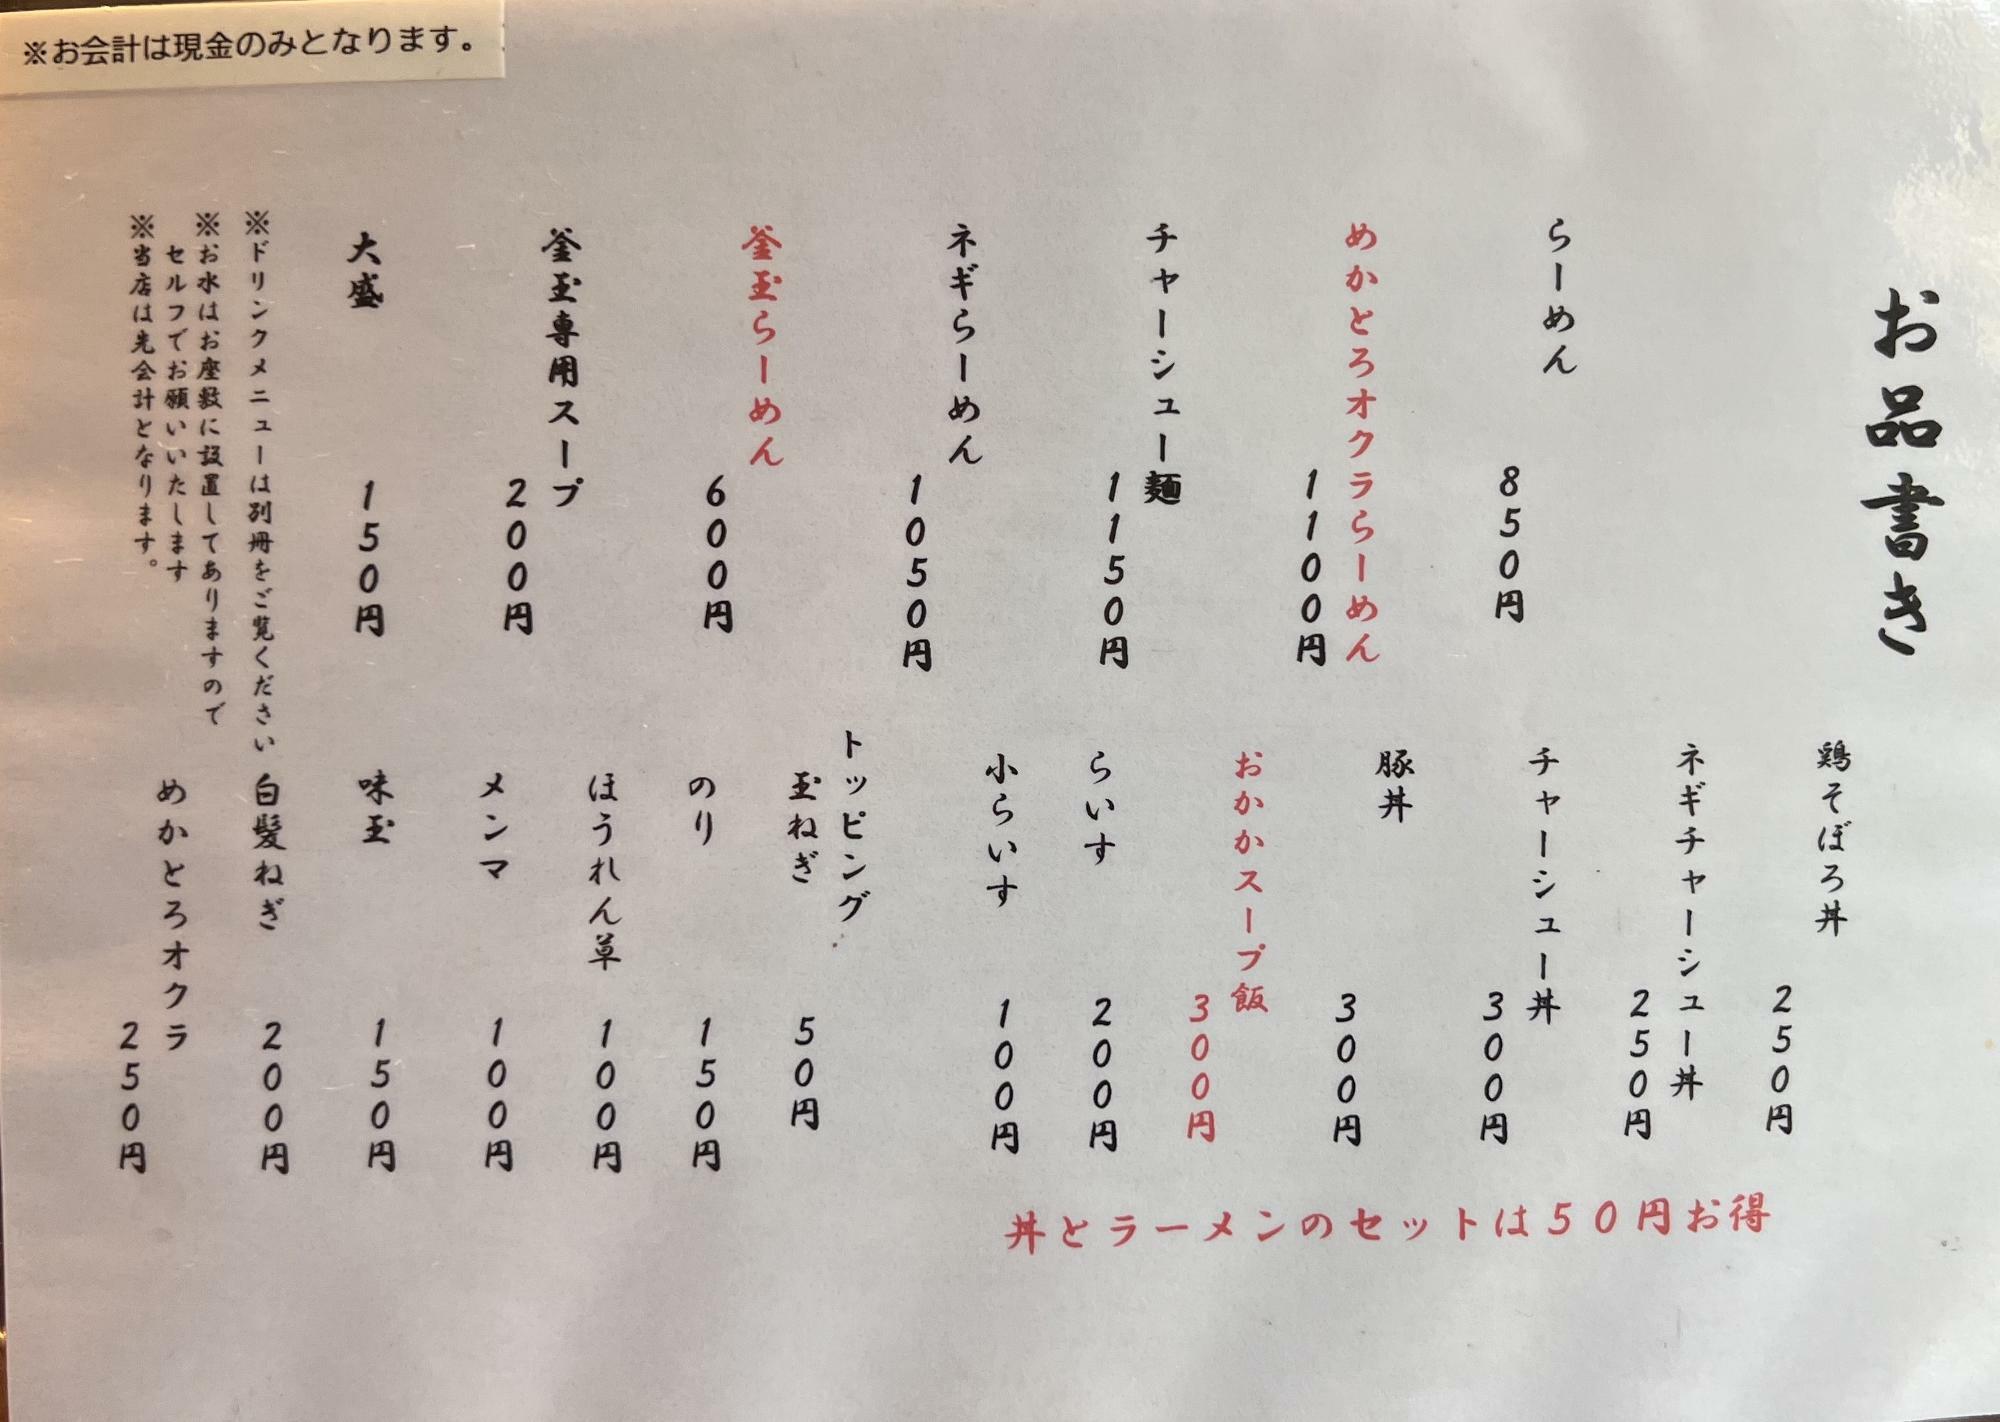 ※お会計は現金のみとなります。
お品書き
らーめん
850円
めかとろオクラらーめん
1100円
チャーシュー麺
1150円
ネギらーめん
1050円
釜玉らーめん
600円
釜玉専用スープ
200円
大盛
150円
※ドリンクメニューは別冊をご覧ください
※お水はお座敷に設置してありますので
セルフでお願いいたします
※当店は先会計となります。
鶏そぼろ丼
250円
ネギチャーシュー丼
250円
チャーシュー丼
300円
豚丼
300円
おかかスープ飯
300円
らいす
200円
小らいす
100円
トッピング
玉ねぎ
50円
のり
150円
ほうれん草
100円
メンマ
100円
味玉
150円
白髪ねぎ
200円
めかとろオクラ
250円
丼とラーメンのセットは50円お得